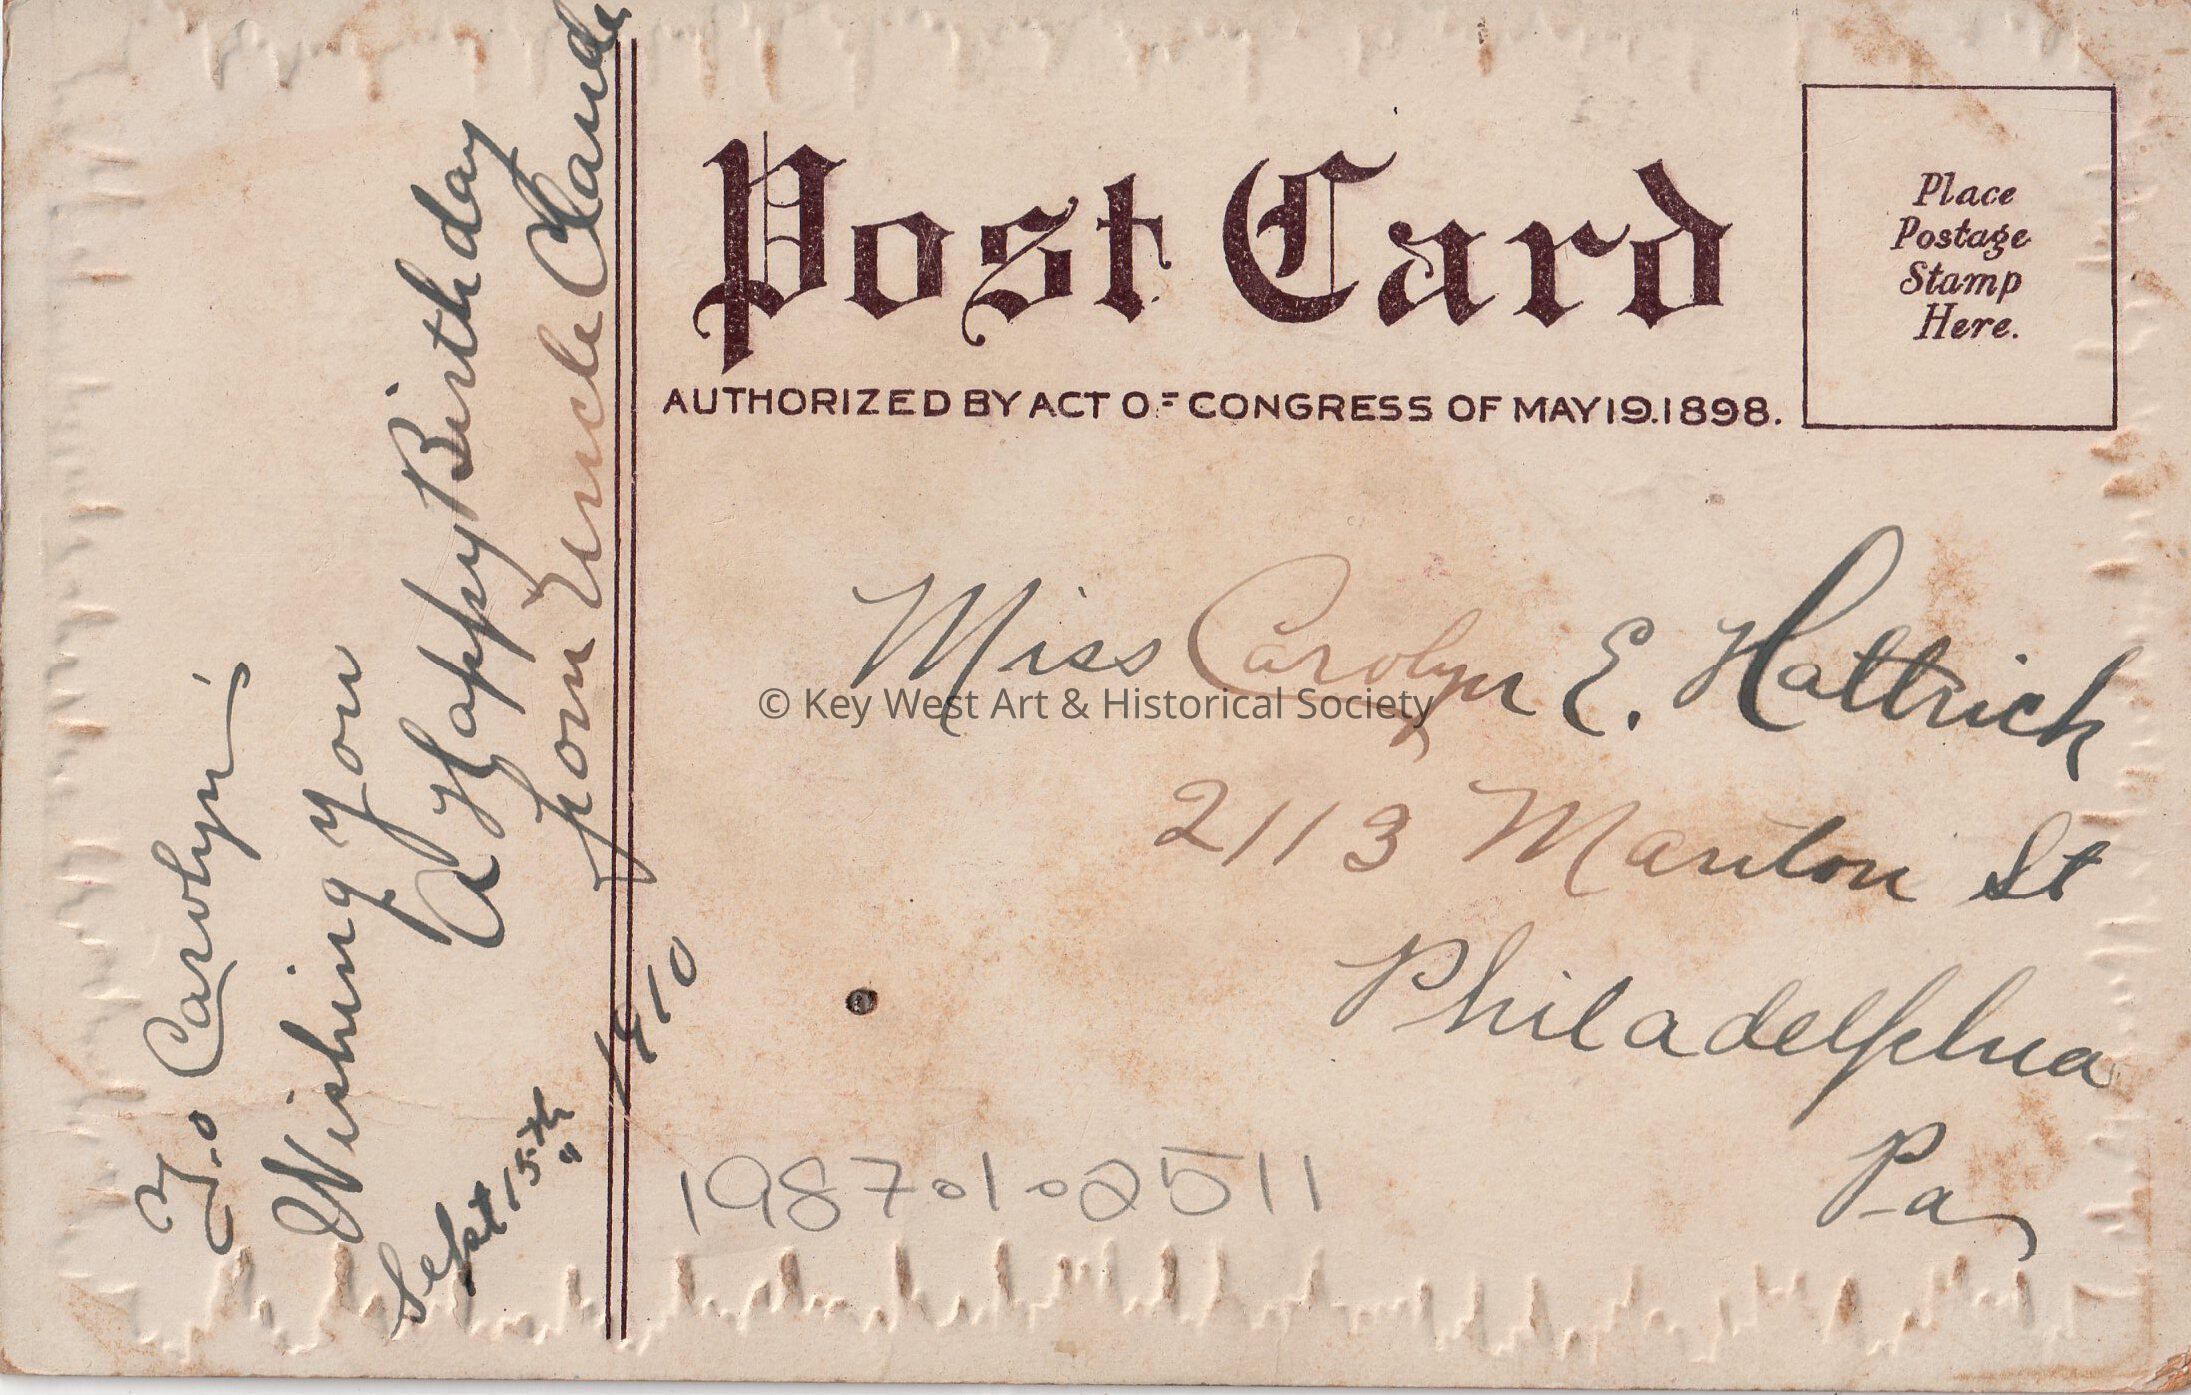 To Carolyn,
Wishing you
a Happy Birthday
from Uncle Claude
Sept 15th 1910
Post Card
AUTHORIZED BY ACT OF CONGRESS OF MAY 19.1898.
Place
Postage
Stamp
Here.
Miss Carolyn E. Hattrich
2113 Manton St
Philadelphia
Pa
© Key West Art & Historical Society
1987.1.2511